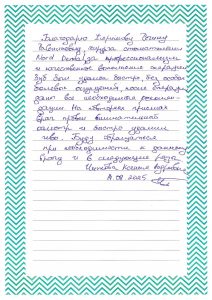 Благодарю
Викторовну, хирурга стоматологии
Nord Dental за профессионализм
и качественное выполнение операции
Зуб был удален быстро, без особых
болевых ощущений, после операции
даны все необходимые рекомен-
дации. На повторном приеме
врач провел внимательный
осмотр и быстро удалил
швы. Буду обращаться
при необходимости к данному
врачу и в следующие разы.
Ксения
08.2025